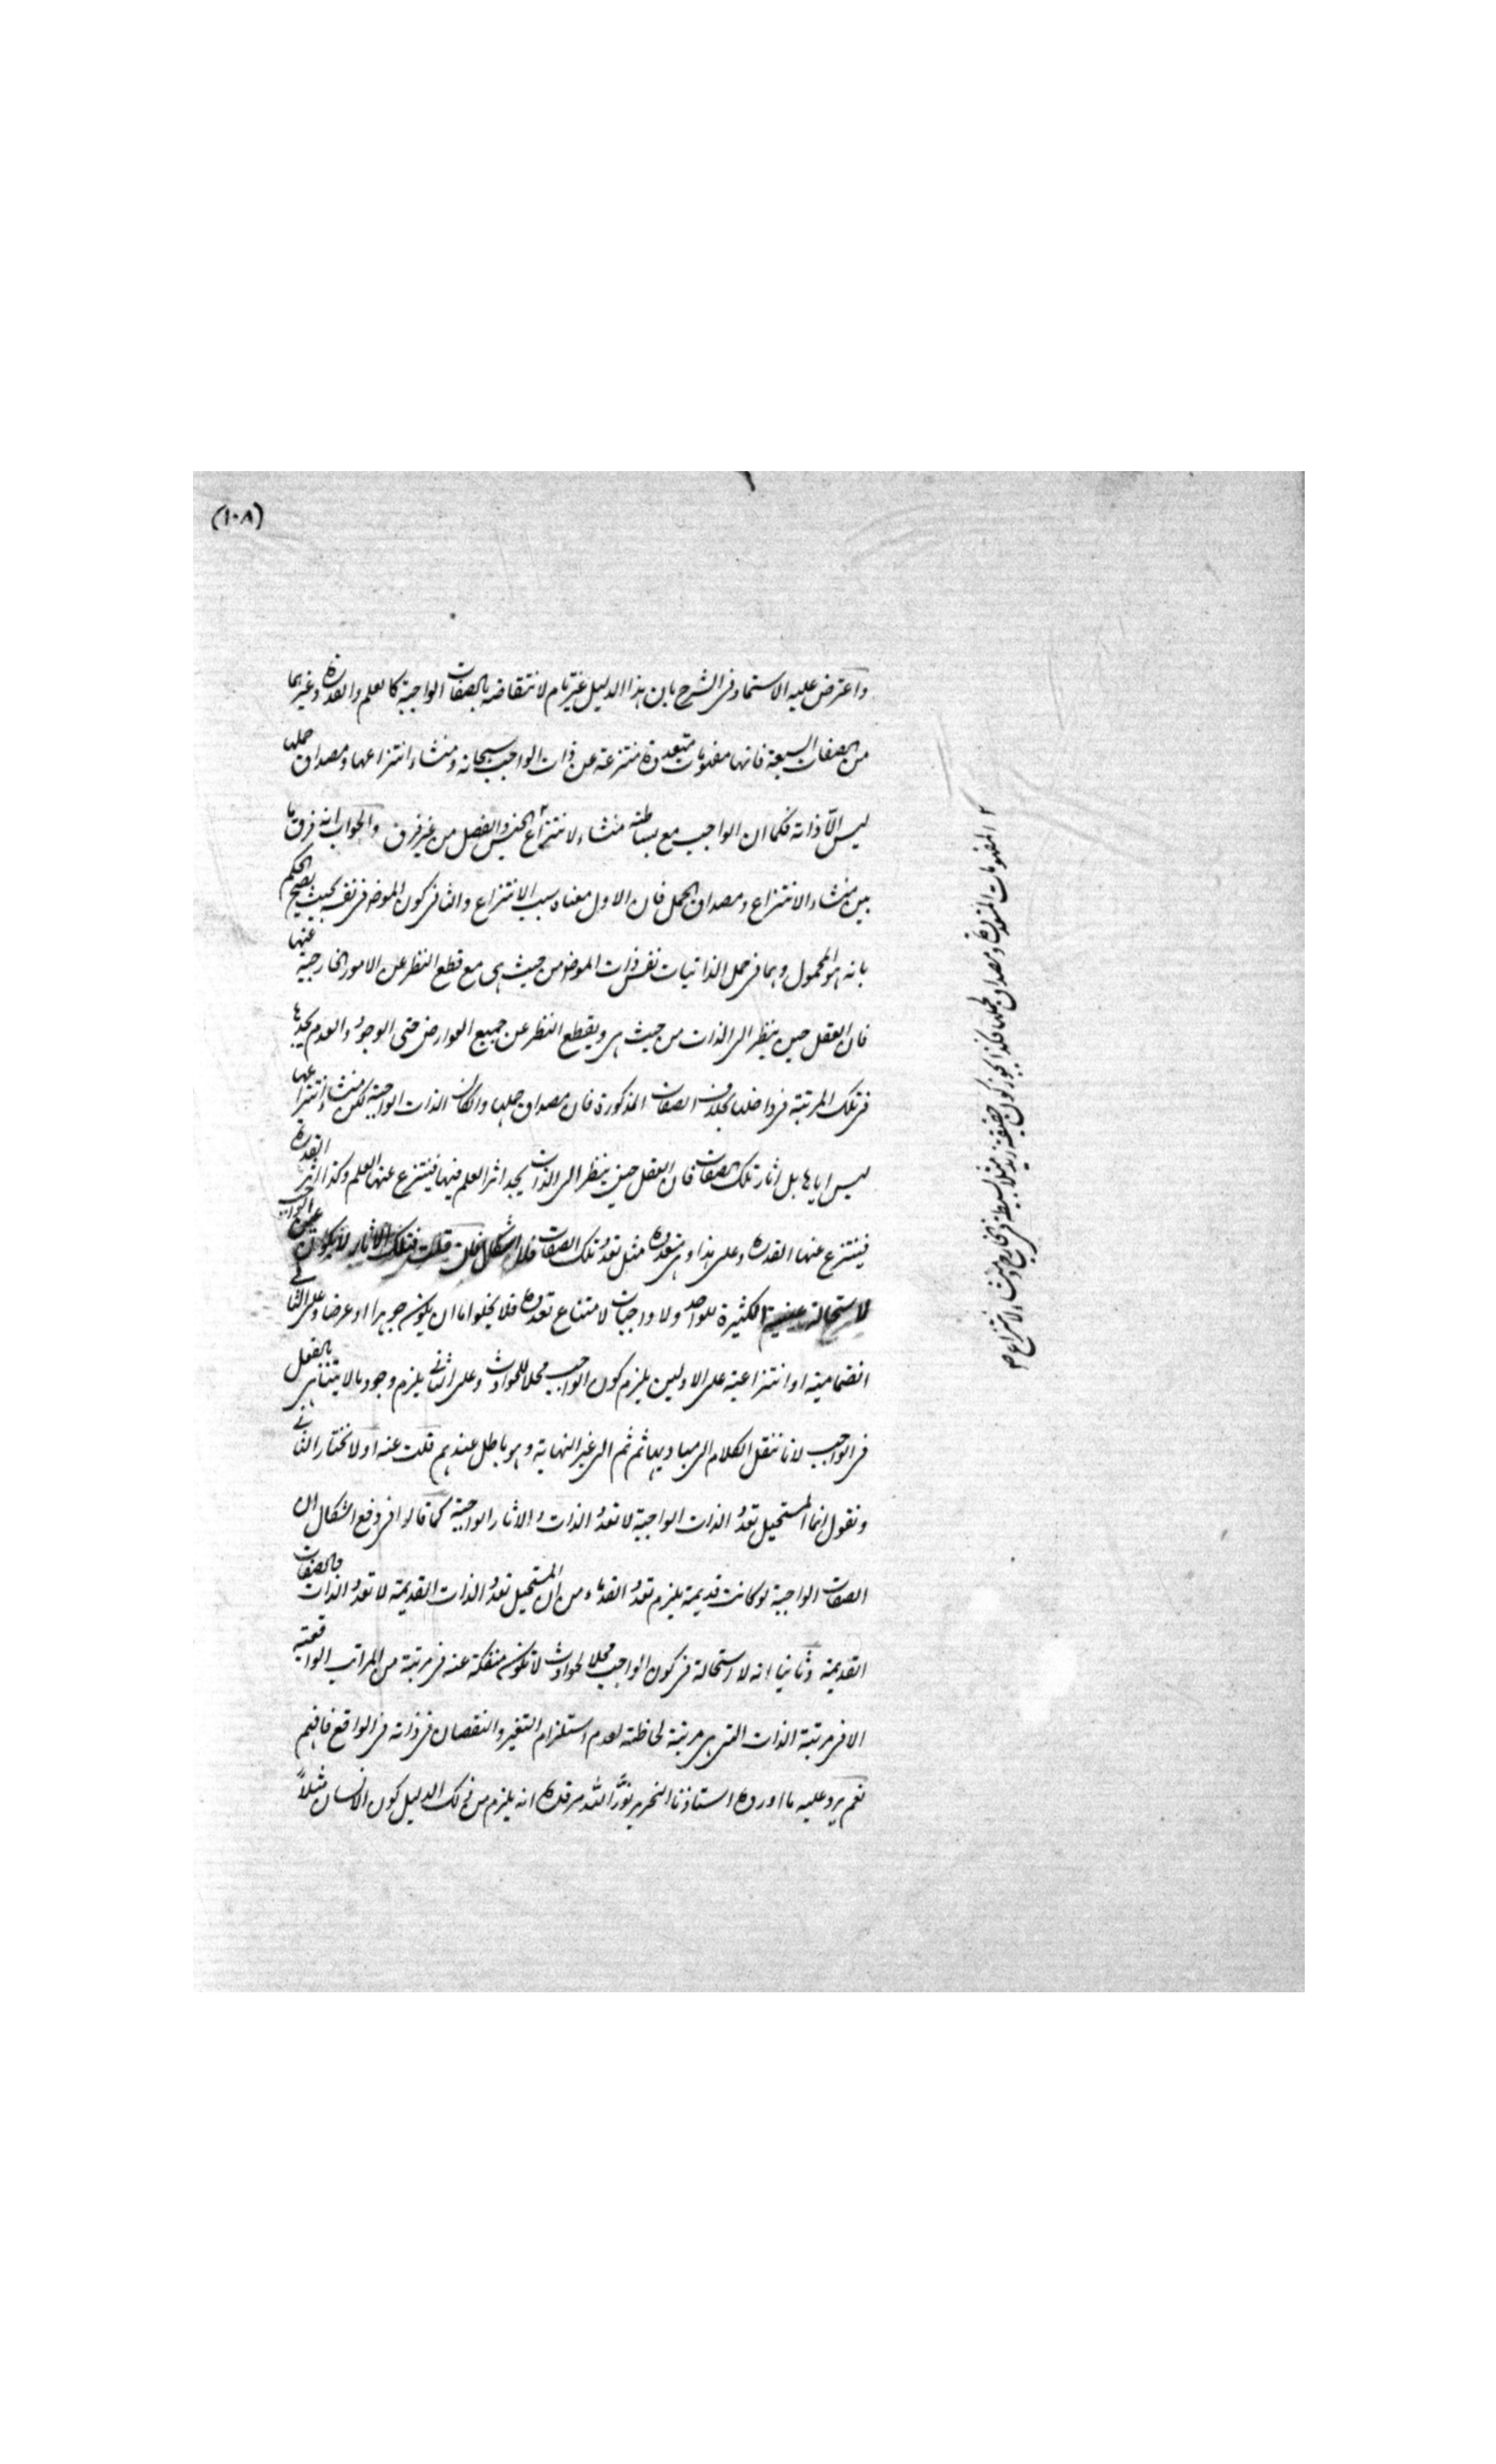 (١٠٨)
واعترض عليه الاستاد في الشرح بان هذا الدليل غير تام لانتقاضه بالصفات الواجبة كالعلم والقدرة وغيرهما
من الصفات السبعة فانها مفهومات متعددة منتزعة عن ذات الواجب سبحانه ومنشاء انتزاعها ومصداق حملها
ليس الّا ذاته فكما ان الواجب مع بساطته منشاء لانتزاع ٢ الجنس والفصل من غير فرق والجواب انه فرق ما
بين منشاء الانتزاع ومصداق الحمل فان الاول معناه سبب الانتزاع والثاني كون الموضوع في نفسه بحيث يصح الحكم
بانه هو المحمول وهما في حمل الذاتيات نفس ذات الموضوع من حيث هي مع قطع النظر عن الامور الخارجية عنها
فان العقل حين ينظر الى الذات من حيث هي ويقطع النظر عن جميع العوارض حتى الوجود والعدم يجدها
في تلك المرتبة فردا لها بخلاف الصفات المذكورة فان مصداق حملها وان كان الذات الواجبة لكن منشاء انتزاعها
ليس اياها بل اثار تلك الصفات فان العقل حين ينظر الى الذات يجد اثر العلم فيها فينتزع عنها العلم وكذا اثر القدرة
فينتزع عنها القدرة وعلى هذا وهي متعددة مثل تعدد تلك الصفات فلا اشكال فان قلت فتلك الاثار لا يكون عين الواجب
لاستحالة عينية الكثيرة للواحد ولا واجبات لامتناع تعدده فلا يخلوا اما ان يكون جوهرا او عرضا وعلى الثاني
انضمامية او انتزاعية على الاولين يلزم كون الواجب محلا للحوادث وعلى الثاني يلزم وجود ما لا يتناهى بالفعل
في الواجب لانا ننقل الكلام الى مباديها ثم ثم الى غير النهاية وهو باطل عندهم قلت عنه اولا نختار الثاني
ونقول انما المستحيل تعدد الذات الواجبة لا تعدد الذات والاثار الواجبة كما قالوا في دفع اشكال ان
الصفات الواجبة لو كانت قديمة يلزم تعدد القدماء من ان المستحيل تعدد الذات القديمة لا تعدد الذات والصفات
القديمة وثانيا انه لا استحالة في كون الواجب محلا لحوادث لا تكون منفكة عنه في مرتبة من المراتب الواقعية
الا في مرتبة الذات التي هي مرتبة لحاظته لعدم استلزام التغير والنقصان في ذاته في الواقع فافهم
نعم يرد عليه ما اورده استاذنا النحرير نوّر الله مرقده انه يلزم من ذلك الدليل كون الانسان مثلاً
٢ المفهومات المتعددة ومصداق لحملها فكذا يجوز كون حقيقة زيد مثلا بسيطة في الخارج ومنشاء لانتزاع